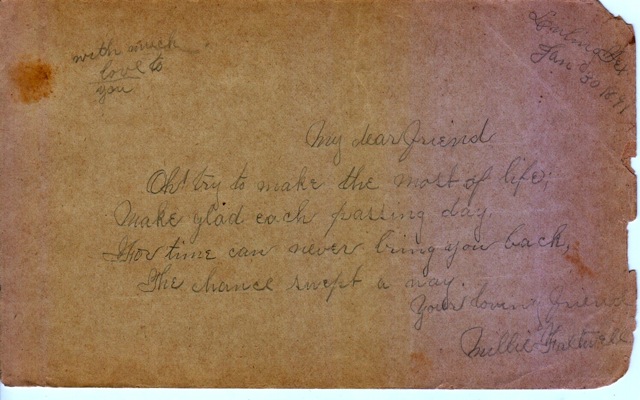 with much
love to
you
Tex
Jan 30 1891
My dear friend
Oh! try to make the most of life;
Make glad each passing day.
For time can never bring you back,
The chance swept a way.
Your loving friend
Millie